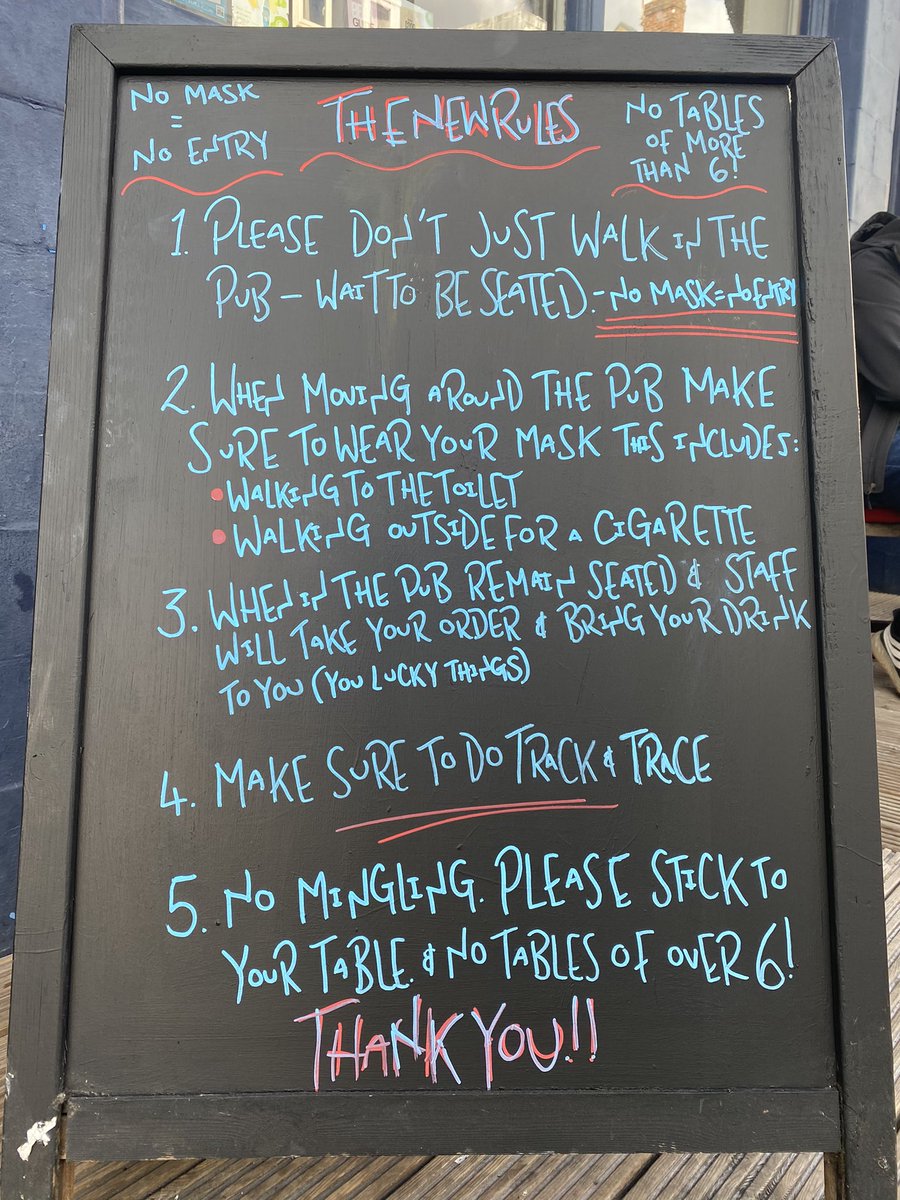 NO MASK
=
NO ENTRY
THE NEW RULES
NO TABLES
OF MORE
THAN 6!
1. PLEASE DON'T JUST WALK IN THE
PUB - WAIT TO BE SEATED. - NO MASK = NO ENTRY
2. WHEN MOVING AROUND THE PUB MAKE
SURE TO WEAR YOUR MASK THIS INCLUDES:
• WALKING TO THE TOILET
• WALKING OUTSIDE FOR A CIGARETTE
3. WHEN IN THE PUB REMAIN SEATED & STAFF
WILL TAKE YOUR ORDER & BRING YOUR DRINK
TO YOU (YOU LUCKY THINGS)
4. MAKE SURE TO DO TRACK & TRACE
5. NO MINGLING. PLEASE STICK TO
YOUR TABLE. & NO TABLES OF OVER 6!
THANK YOU!!